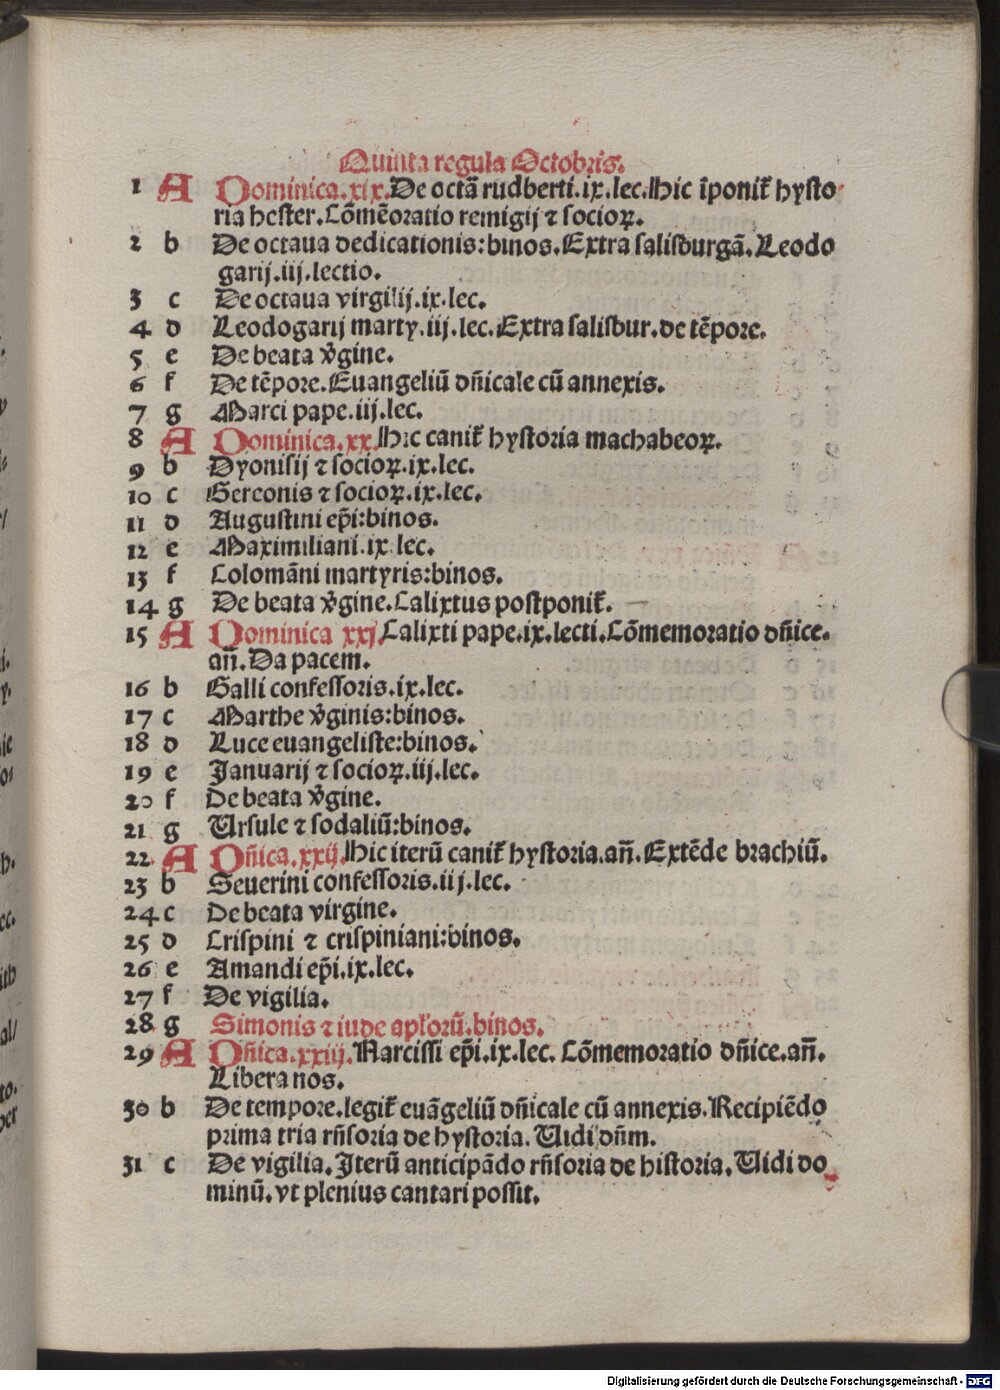 Quinta regula Octobris.
1 A Dominica.xix.De octã rudberti.ix.lec.Hic ĩponit᷑ hysto
ria hester.Cõmẽoratio remigij ⁊ socioꝝ.
2 b De octaua dedicationis:binos.Extra salisburgã.Leodo
garij.iij.lectio.
3 c De octaua virgilij.ix.lec.
4 d Leodogarij marty.iij.lec.Extra salisbur.de tẽpore.
5 e De beata ꝟgine.
6 f De tẽpore.Euangeliũ dñicale cũ annexis.
7 g Marci pape.iij.lec.
8 A Dominica.xx.Hic canit᷑ hystoria machabeoꝝ.
9 b Dyonisij ⁊ socioꝝ.ix.lec.
10 c Gereonis ⁊ socioꝝ.ix.lec.
11 d Augustini ep̃i:binos.
12 e Maximiliani.ix.lec.
13 f Colomãni martyris:binos.
14 g De beata ꝟgine.Calixtus postponit᷑.
15 A Dominica xxj.Calixti pape.ix.lecti.Cõmemoratio dñice.
añ.Da pacem.
16 b Galli confessoris.ix.lec.
17 c Marthe ꝟginis:binos.
18 d Luce euangeliste:binos.
19 e Januarij ⁊ socioꝝ.iij.lec.
20 f De beata ꝟgine.
21 g Ursule ⁊ sodaliũ:binos.
22. A Dñica.xxij.Hic iterũ canit᷑ hystoria.añ.Extẽde brachiũ.
23 b Seuerini confessoris.iij.lec.
24 c De beata virgine.
25 d Crispini ⁊ crispiniani:binos.
26 e Amandi ep̃i.ix.lec.
27 f De vigilia.
28 g Simonis ⁊ iude apl̃orũ.binos.
29 A Dñica.xxiij.Narcissi ep̃i.ix.lec.Cõmemoratio dñice.añ.
Libera nos.
30 b De tempore.legit᷑ euãgeliũ dñicale cũ annexis.Recipiẽdo
prima tria rñsoria de hystoria.Uidi dñm.
31 c De vigilia.Iterũ anticipãdo rñsoria de historia.Uidi do
minũ.vt plenius cantari possit.
Digitalisierung gefördert durch die Deutsche Forschungsgemeinschaft - DFG